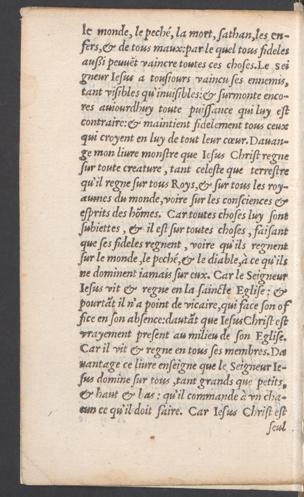 le monde, le peché, la mort, sathan, les en-
fers, & de tous maux: par le quel tous fideles
aussi peuuẽt vaincre toutes ces choses. Le sei
gneur Iesus a tousiours vaincu ses ennemis,
tant visibles qu'inuisibles: & surmonte enco-
res auiourdhuy toute puissance qui luy est
contraire: & maintient fidelement tous ceux
qui croyent en luy de tout leur cœur. Dauan-
ge mon liure monstre que Iesus Christ regne
sur toute creature, tant celeste que terrestre
qu'il regne sur tous Roys, & sur tous les roy-
aumes du monde, voire sur les consciences &
esprits des hõmes. Car toutes choses luy sont
subiettes, & il est sur toutes choses, faisant
que ses fideles regnent, voire qu'ils regnent
sur le monde, le peché, & le diable, à ce qu'ils
ne dominent iamais sur eux. Car le Seigneur
Iesus vit & regne en la saincte Eglise: &
pourtãt il n'a point de vicaire, qui face son of
fice en son absence: dautãt que Iesus Christ est
vrayement present au milieu de son Eglise.
Car il vit & regne en tous ses membres. Da
uantage ce liure enseigne que le Seigneur Ie-
sus domine sur tous, tant grands que petits,
& haut & bas: qu'il commande à vn cha-
cun ce qu'il doit faire. Car Iesus Christ est
seul